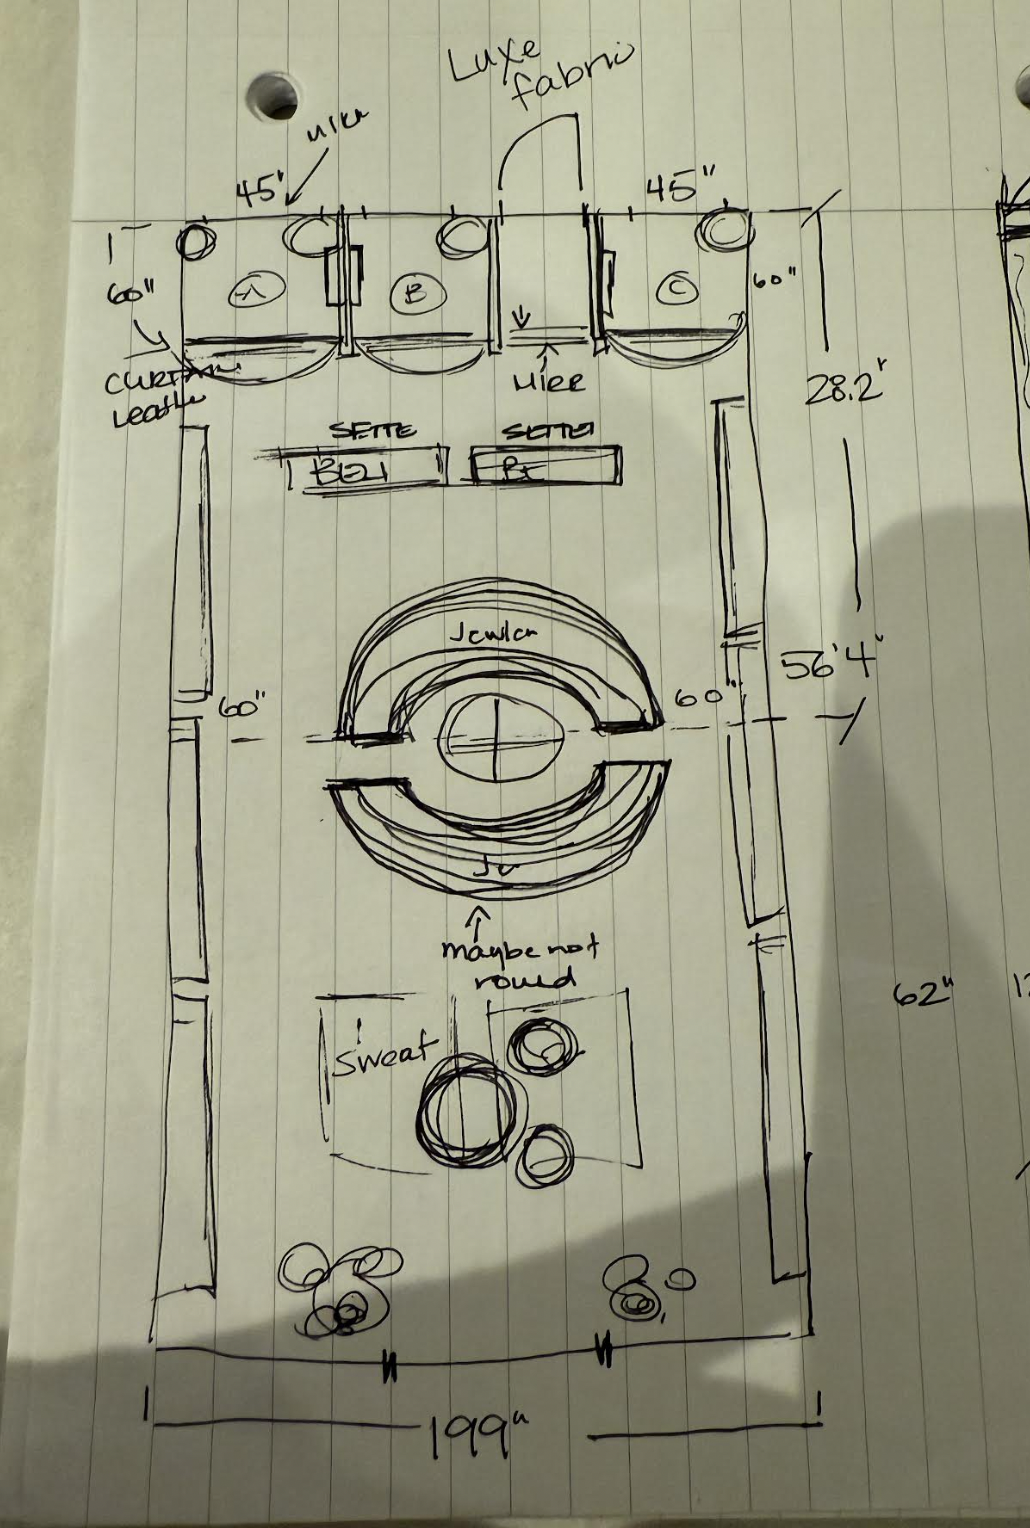 Luxe
fabric
45'
45"
60"
A
B
C
60"
CURTAIN
Leather
28.2'
SETTE
SETTE
BE
Jewler
60"
60"
56'4"
Jw
maybe not
round
62"
Sweat
199"